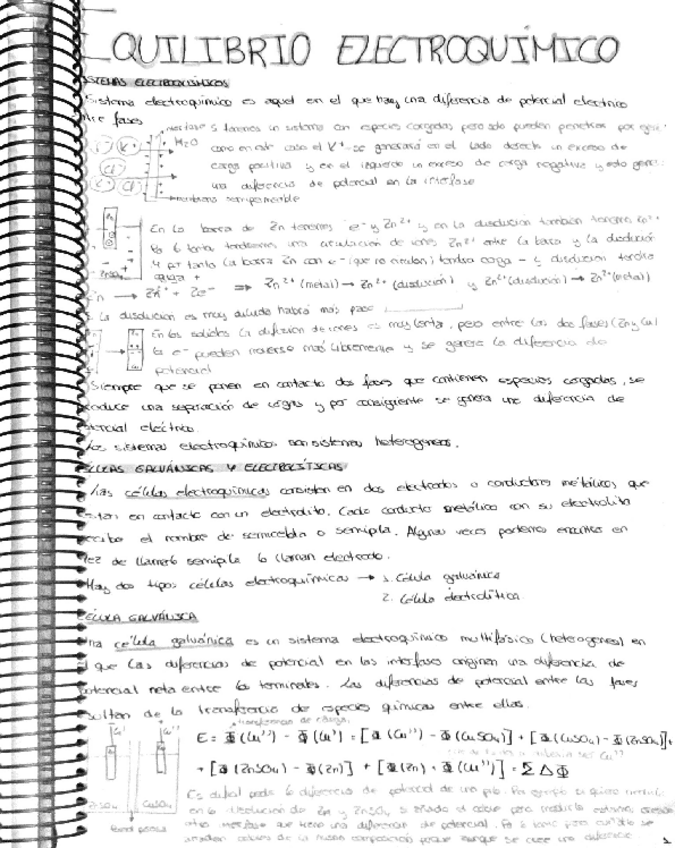 EQUILIBRIO ELECTROQUÍMICO
SISTEMAS ELECTROQUÍMICOS
Sistema electroquímico es aquel en el que hay una diferencia de potencial eléctrico
entre fases
interfase Si tenemos un sistema con especies cargadas pero solo pueden penetrar por
H2O como en este caso el K+ se generará en el lado derecho un exceso de
carga positiva y en el izquierdo un exceso de carga negativa y esto
una diferencia de potencial en la interfase
membrana semipermeable
En la barra de Zn tenemos e- y Zn2+ y en la disolución también tenemos Zn2+
Zn2+ entre la barra y la disolución
y por tanto la barra Zn con e- (que no circulan) tendrá carga - y disolución tendrá
carga +
Zn → Zn2+ + 2e- ⇒ Zn2+ (metal) → Zn2+ (disolución) y Zn2+ (disolución) → Zn2+ (metal)
la disolución es muy diluida habrá más paso
En los sólidos la difusión de iones es muy lenta, pero entre las dos fases (Zn y Cu)
los e- pueden moverse más libremente y se genera la diferencia de
potencial
Siempre que se ponen en contacto dos fases que contienen especies cargadas, se
produce una separación de cargas y por consiguiente se genera una diferencia de
potencial eléctrico.
Los sistemas electroquímicos son sistemas heterogéneos.
CÉLULAS GALVÁNICAS Y ELECTROLÍTICAS
Las células electroquímicas consisten en dos electrodos o conductores metálicos que
están en contacto con un electrolito. Cada conductor metálico con su electrolito
recibe el nombre de semicelda o semipila. Algunas veces podemos encontrar en
vez de llamarlo semipila lo llaman electrodo.
Hay dos tipos células electroquímicas → 1. Célula galvánica
2. Célula electrolítica
CÉLULA GALVÁNICA
Una célula galvánica es un sistema electroquímico multifásico (heterogéneo) en
el que las diferencias de potencial en las interfases originan una diferencia de
potencial neta entre los terminales. Las diferencias de potencial entre las fases
resultan de la transferencia de especies químicas entre ellas.
transferencia de carga.
Cu' Cu'' E = Φ(Cu'') - Φ(Cu') = [Φ(Cu'') - Φ(CuSO4)] + [Φ(CuSO4) - Φ(ZnSO4)] +
+ [Φ(ZnSO4) - Φ(Zn)] + [Φ(Zn) - Φ(Cu')] = Σ ΔΦ
ZnSO4 CuSO4 Es difícil medir la diferencia de potencial de una pila. Por ejemplo si quiero
en la disolución de Zn y ZnSO4 si añado el cable para medirlo estamos
otra interfase que tiene una diferencia de potencial.
cables de la misma composición porque aunque se cree una diferencia
1